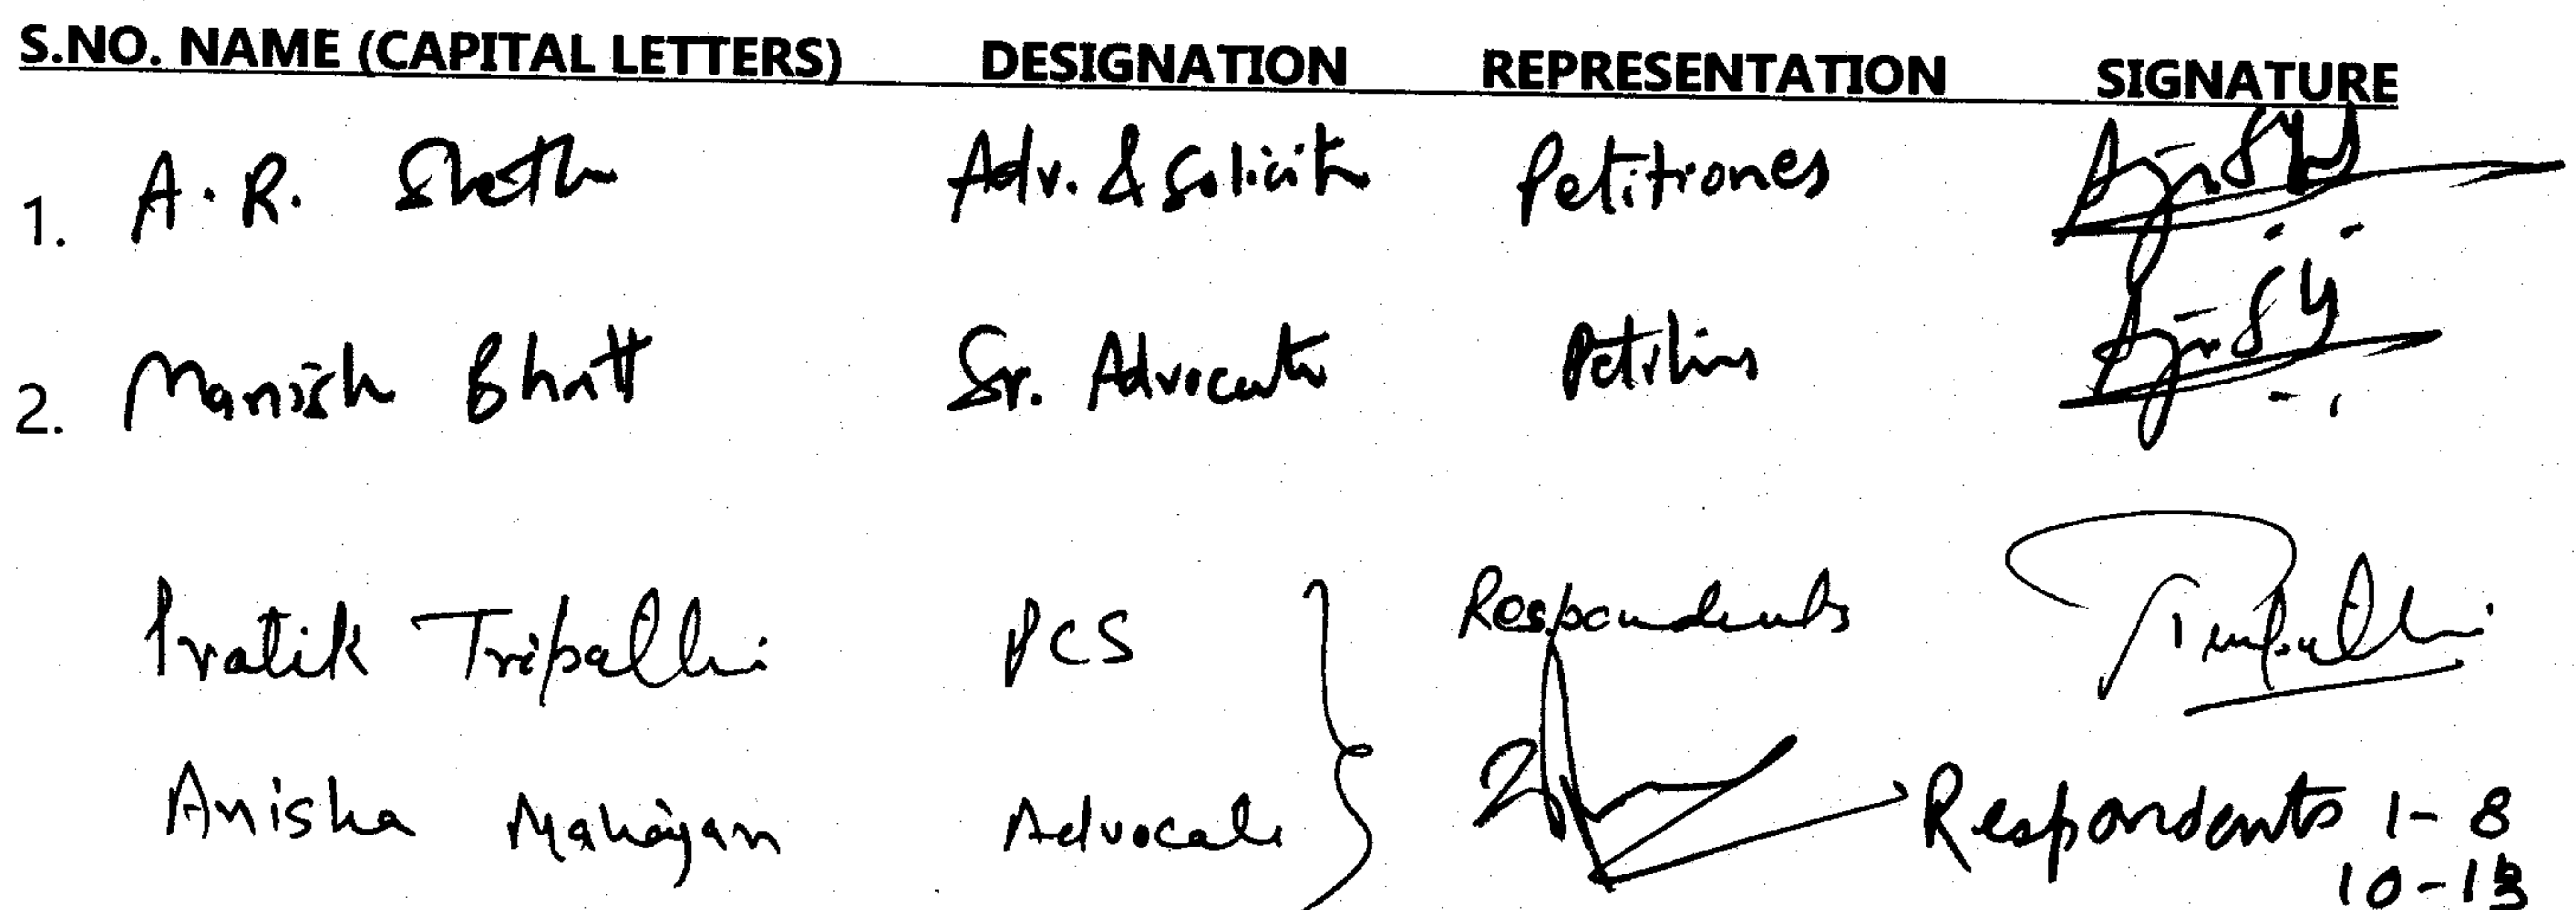 S.NO. NAME (CAPITAL LETTERS) DESIGNATION REPRESENTATION SIGNATURE
1. A. R. Sheth Adv. & Solicitr Petitiones
2. Manish Bhatt Sr. Advocate
Pratik Tripathi PCS Respondents Tripathi
Anisha Mahajan Advocate Respondents 1-8
10-13